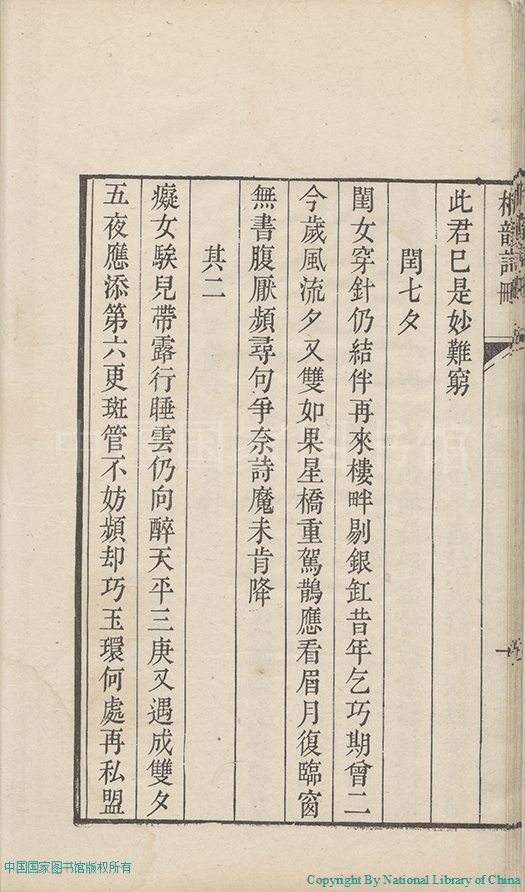 此君已是妙難窮
閏七夕
閨女穿針仍結伴再來樓畔剔銀釭昔年乞巧期曾二
今歲風流夕又雙如果星橋重駕鵲應看眉月復臨窗
無書腹厭頻尋句爭奈詩魔未肯降
其二
癡女騃兒帶露行睡雲仍向醉天平三庚又遇成雙夕
五夜應添第六更斑管不妨頻却巧玉環何處再私盟
中国国家图书馆版权所有
Copyright By National Library of China